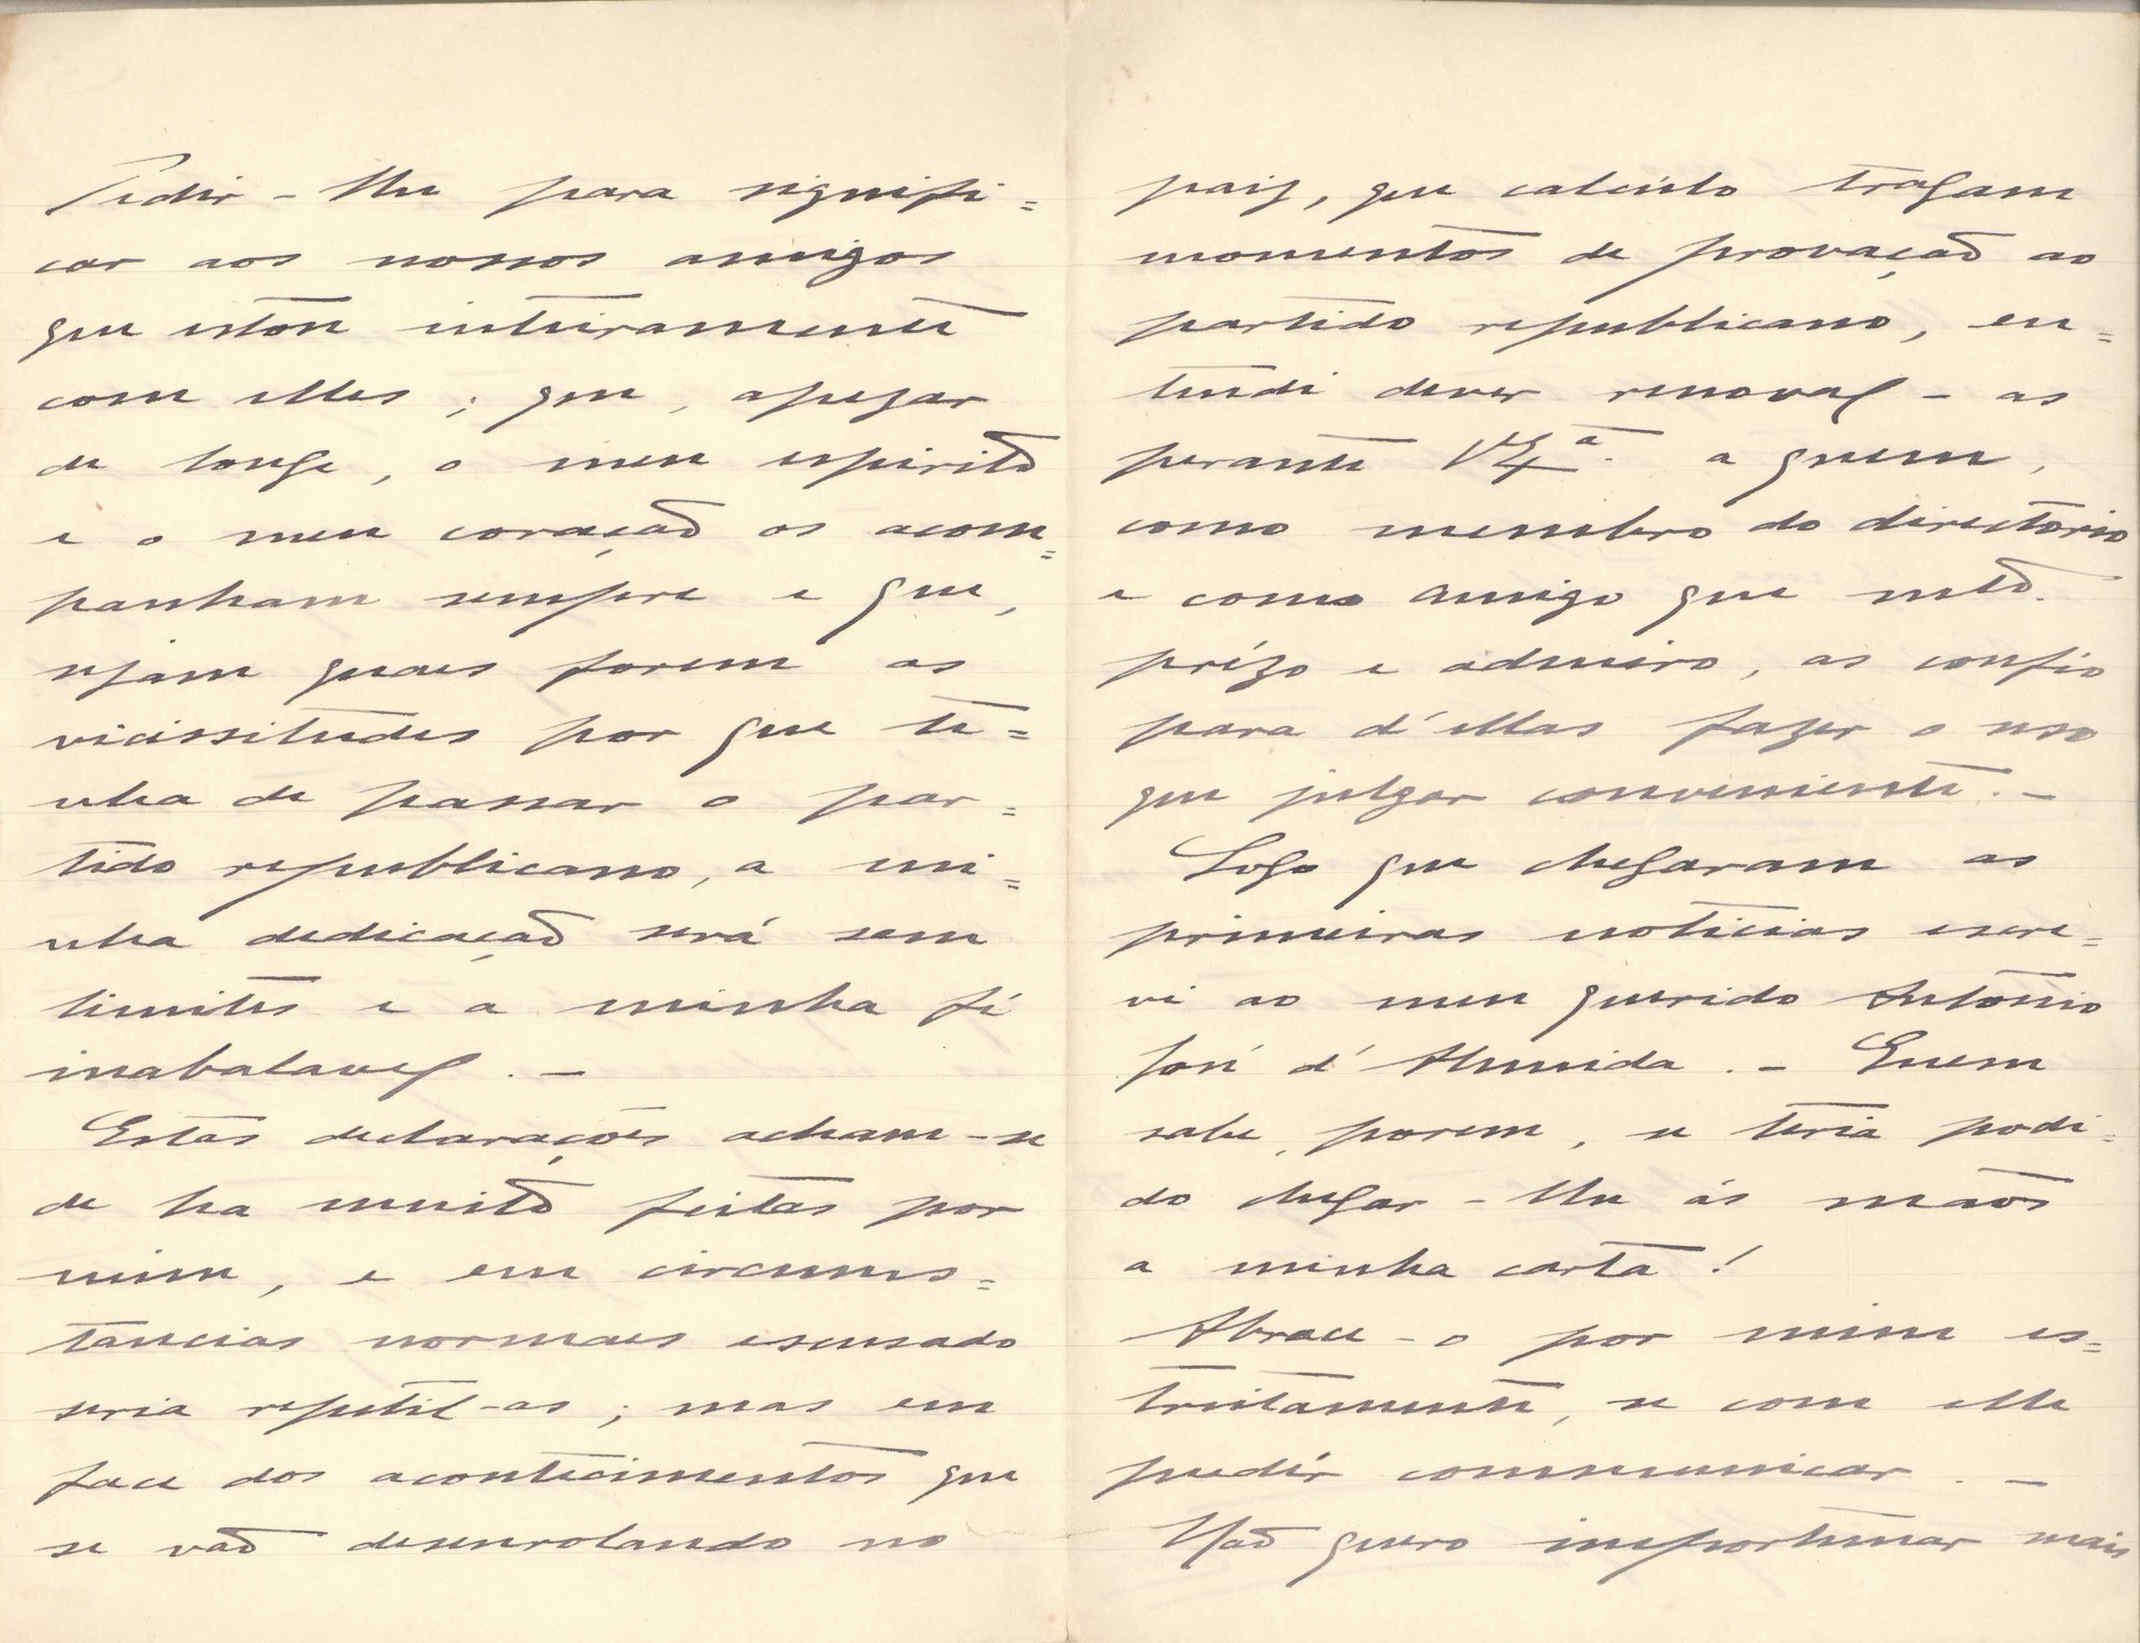 Pedir-lhe para signifi=
car aos nossos amigos
que estou inteiramente
com elles; que, apezar
de longe, o meu espirito
e o meu coração os acom=
panham sempre e que,
sejam quaes forem as
vicissitudes por que te=
nha de passar o par=
tido republicano, a mi=
nha dedicação será sem
limites e a minha fé
inabalavel. –
Estas declarações acham-se
de ha muito feitas por
mim, e em circums=
tancias normaes escusado
seria repetil-as; mas em
face dos acontecimentos que
se vão desenrolando no
paiz, que calculo tragam
momentos de provação ao
partido republicano, en=
tendi dever renoval-as
perante V. Ex.ª a quem,
como membro do directorio
e como amigo que mto.
prézo e admiro, as confio
para d'ellas fazer o uso
que julgar conveniente. –
Logo que chegaram as
primeiras noticias escre=
vi ao meu querido Antonio
José d'Almeida. – Quem
sabe, porem, se teria podi=
do chegar-lhe ás mãos
a minha carta!
Abrace-o por mim es=
treitamente, se com elle
pudér communicar. –
Não quero importunar mais